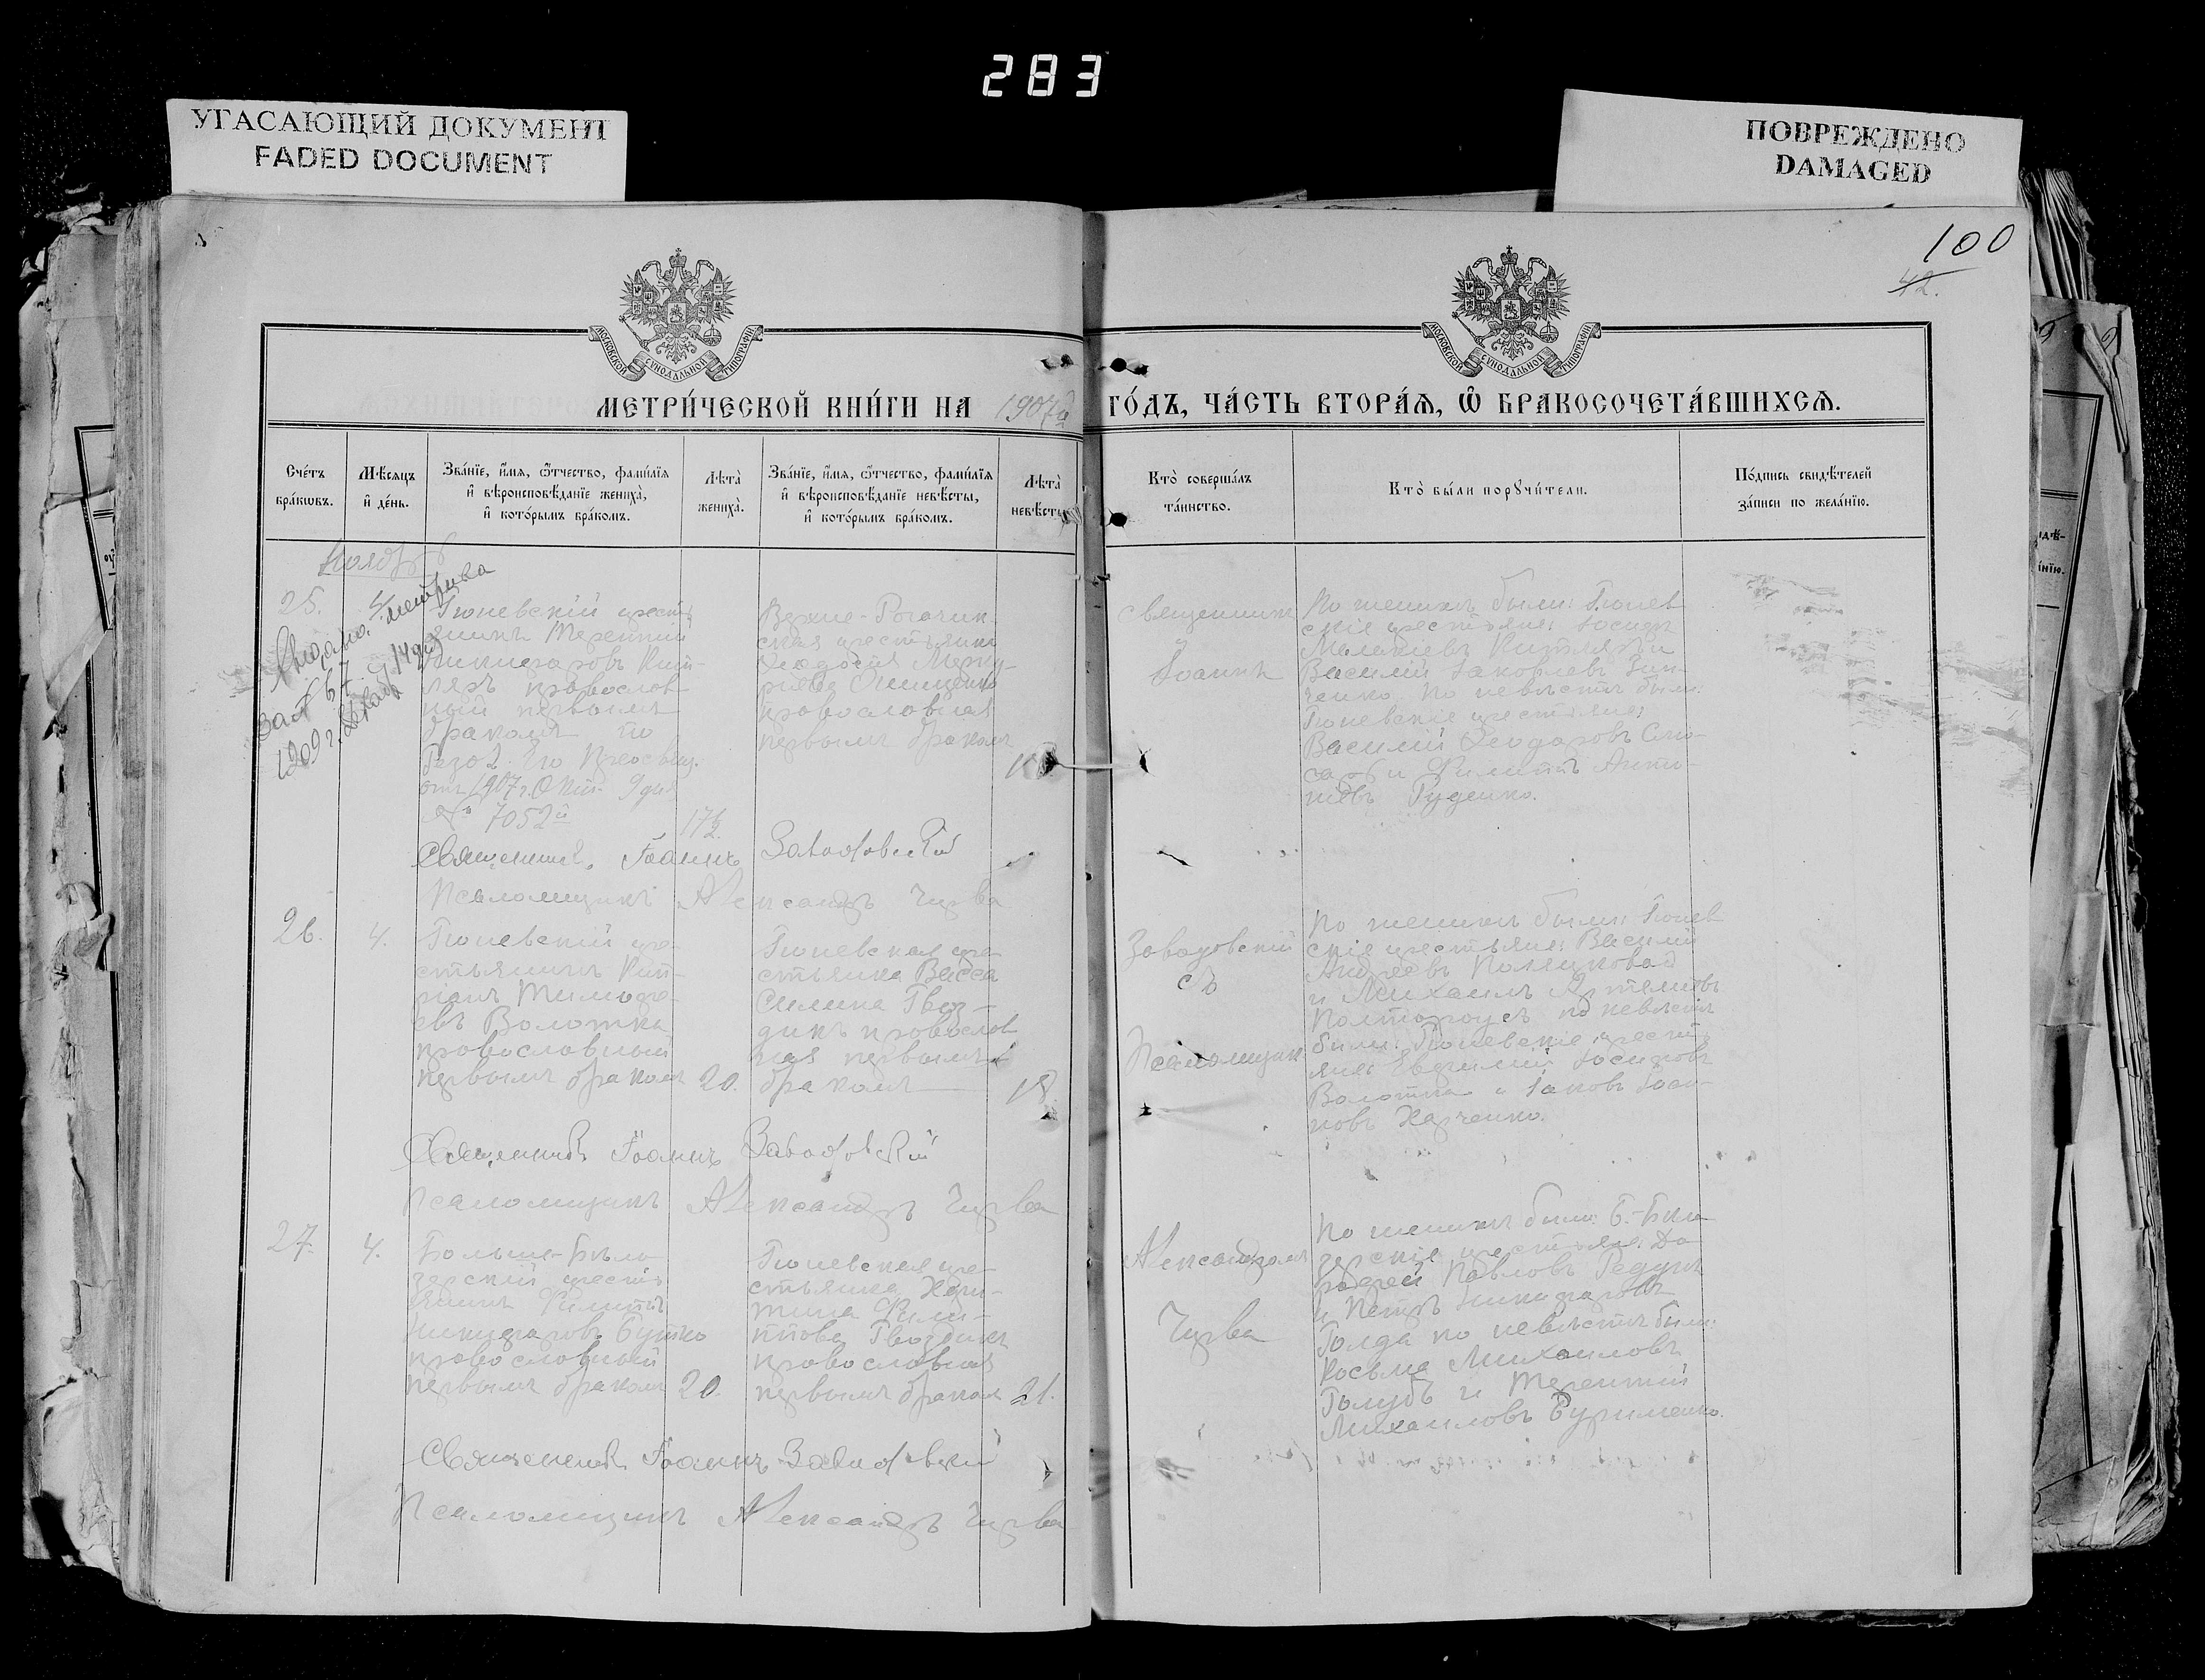 283
УГАСАЮЩИЙ ДОКУМЕНТ
FADED DOCUMENT
ПОВРЕЖДЕНО
DAMAGED
100
42.
МОСКОВСКОЙ СѴНОДАЛЬНОЙ ТИПОГРАФІИ
МОСКОВСКОЙ СѴНОДАЛЬНОЙ ТИПОГРАФІИ
МЕТРИ́ЧЕСКОЙ КНИ́ГИ НА 1907й ГО́ДЪ, ЧА́СТЬ ВТОРА́Ѧ, Ѽ БРАКОСОЧЕТА́ВШИХСѦ.
Сче́тъ
бра́кѡвъ.
Мѣ́сяцъ
и҆ де́нь.
Зва́нїе, и҆́мѧ, ѻ҆́тчество, фами́лїѧ
и҆ вѣроисповѣ́данїе жениха̀,
и҆ кото́рымъ бра́комъ.
Лѣ́та̀
жениха̀.
Зва́нїе, и҆́мѧ, ѻ҆́тчество, фами́лїѧ
и҆ вѣроисповѣ́данїе невѣ́сты,
и҆ кото́рымъ бра́комъ.
Лѣ́та̀
невѣ́сты
Кто̀ соверша́лъ
та́инство.
Кто̀ бы́ли порꙋчи́тели.
По́дпись свидѣ́телей
за́писи по жела́нїю.
Ноябрь
25.
4.
метрика
за № 67
1909 г. Декаб. 14 дня
Тюневскій кресть
янинъ Терентий
Никифоровъ Кит-
ляръ православ
ный первымъ
бракомъ по
Резол. Его Преосвящ.
отъ 1907 г. Окт. 9 дня
№ 7052й
17½
Верхне-Рогачик-
ская крестьянка
Феодосія Мерку-
рiева Онищенко
православная
первымъ бракомъ
Священникъ
Іоаннъ
По женихѣ были: Тюнев
скіе крестьяне: Іосифъ
Малахіевъ Китляръ и
Василій Іаковлевъ Ган-
ченко по невѣстѣ были:
Тюневскіе крестьяне:
Василій Феодоровъ
и Филиппъ Анто-
новъ Руденко.
Священникъ Іоаннъ Заводовскій
Псаломщикъ Александръ Чирва
26.
4.
Тюневскій кре-
стьянинъ Кип-
ріанъ Тимофе-
евъ Волотка
православный
первымъ бракомъ
20.
Тюневская кре-
стьянка Васса
Силина Гвоз-
дикъ православ
ная первымъ
бракомъ
18.
Заводовскій
съ
Псаломщик
По женихѣ были: Тюнев
скіе крестьяне: Василий
Андреевъ
и Михаилъ Артемовъ
Полтораусъ по невѣстѣ
были: Тюневскіе кресть
яне: Евфимій Іосифовъ
Волотка и Іаковъ Іоси-
фовъ Харченко.
Священникъ Іоаннъ Заводовскій
Псаломщикъ Александръ Чирва
27.
4.
Больше-Бѣло
зерскій кресть
янинъ Филиппъ
Никифоровъ Бутко
православный
первымъ бракомъ
20.
Тюневская кре-
стьянка Хари-
тина Фили-
ппова Гвоздикъ
православная
первымъ бракомъ
21.
Александромъ
Чирва
По женихѣ были: Б.-Бѣло
зерскіе крестьяне: До
рофей Павловъ Редунъ
и Петръ Никифоровъ
Голда по невѣстѣ были:
Косьма Михаиловъ
Голубъ и Терентий
Михаиловъ Буріменко.
Священникъ Іоаннъ Заводовскій
Псаломщикъ Александръ Чирва